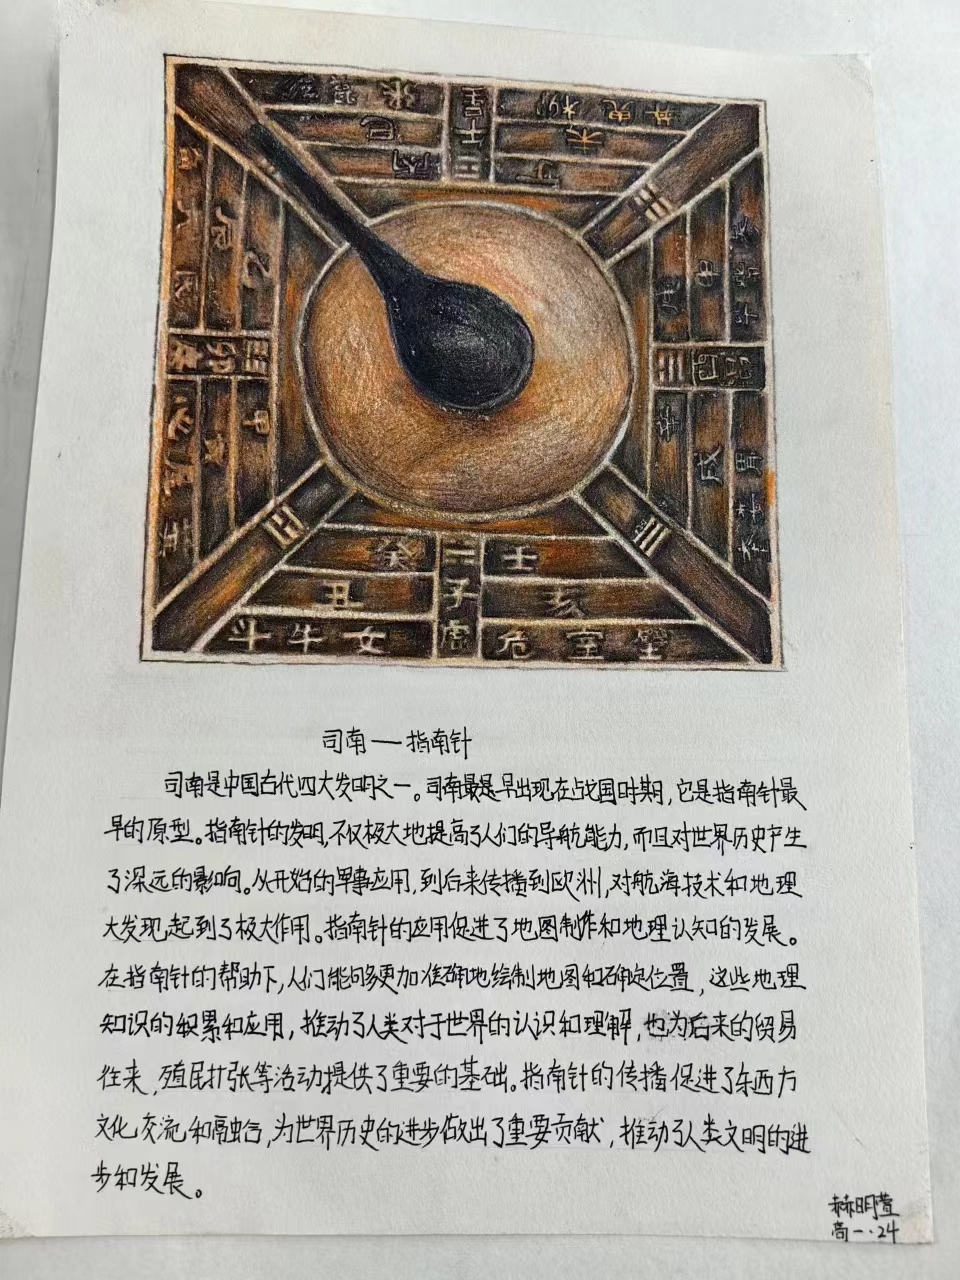 張
柳
鬼
井
星
巳
午
未
丙
丁
辰
乙
卯
甲
申
酉
辛
戌
胃
癸
壬
丑
子
亥
斗 牛 女
虛
危 室 壁
司南 — 指南针
司南是中国古代四大发明之一。司南最是早出现在战国时期，它是指南针最
早的原型。指南针的发明，不仅极大地提高了人们的导航能力，而且对世界历史产生
了深远的影响。从开始的军事应用，到后来传播到欧洲，对航海技术和地理
大发现起到了极大作用。指南针的应用促进了地图制作和地理认知的发展。
在指南针的帮助下，人们能够更加准确地绘制地图和确定位置，这些地理
知识的积累和应用，推动了人类对于世界的认识和理解，也为后来的贸易
往来，殖民扩张等活动提供了重要的基础。指南针的传播促进了东西方
文化交流和融合，为世界历史的进步做出了重要贡献，推动了人类文明的进
步和发展。
赫明萱
高一·24